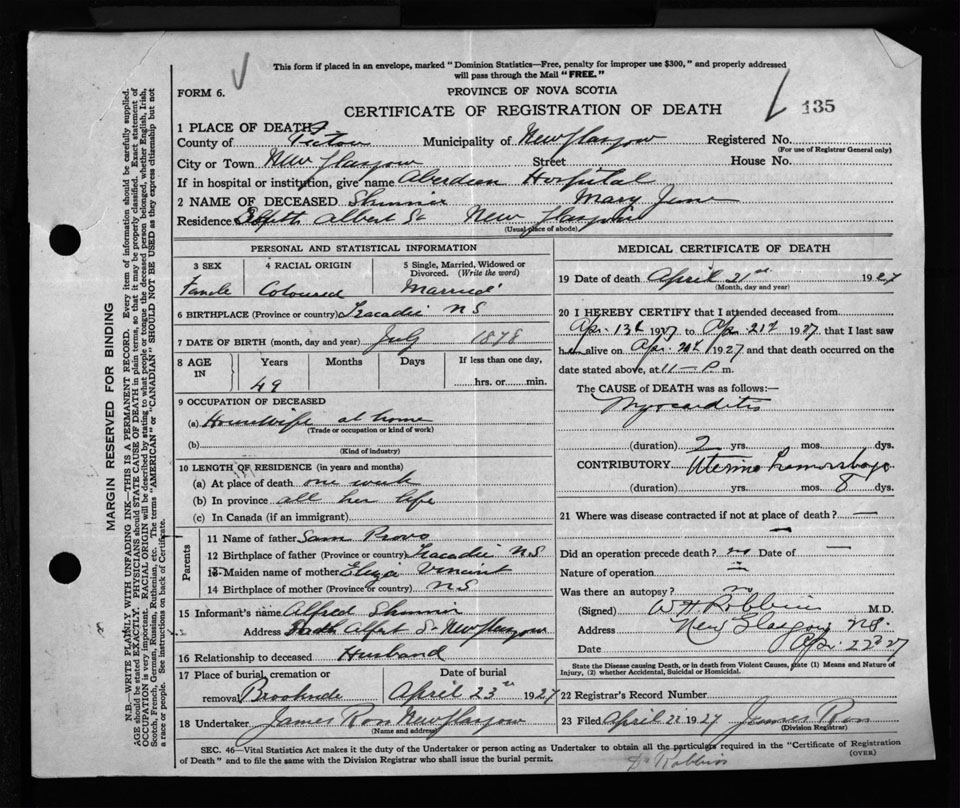 This form if placed in an envelope, marked "Dominion Statistics—Free, penalty for improper use $300," and properly addressed
will pass through the Mail "FREE."
FORM 6.
PROVINCE OF NOVA SCOTIA
CERTIFICATE OF REGISTRATION OF DEATH
135
1 PLACE OF DEATH
County of Pictou Municipality of New Glasgow Registered No.
(For use of Registrar General only)
City or Town New Glasgow Street House No.
If in hospital or institution, give name Aberdeen Hospital
2 NAME OF DECEASED Skinner Mary Jane
Residence South Albert St New Glasgow
(Usual place of abode)
PERSONAL AND STATISTICAL INFORMATION
3 SEX 4 RACIAL ORIGIN 5 Single, Married, Widowed or
Divorced. (Write the word)
Female Coloured Married
6 BIRTHPLACE (Province or country) Tracadie N S
7 DATE OF BIRTH (month, day and year) July 1878
8 AGE IN Years Months Days If less than one day,
49 hrs. or min.
9 OCCUPATION OF DECEASED
(a) Housewife at home
(Trade or occupation or kind of work)
(b)
(Kind of industry)
10 LENGTH OF RESIDENCE (in years and months)
(a) At place of death one week
(b) In province all her life
(c) In Canada (if an immigrant)
Parents
11 Name of father Sam Provo
12 Birthplace of father (Province or country) Tracadie N S
13 Maiden name of mother Eliza Vincent
14 Birthplace of mother (Province or country) N S
15 Informant's name Alfred Skinner
Address South St New Glasgow
16 Relationship to deceased Husband
17 Place of burial, cremation or Date of burial
removal Brookside April 23rd 1927
18 Undertaker James Ross New Glasgow
(Name and address)
MEDICAL CERTIFICATE OF DEATH
19 Date of death April 21st 1927
(Month, day and year)
20 I HEREBY CERTIFY that I attended deceased from
Apr. 13th 1927 to Apr 21st 1927 that I last saw
her alive on Apr. 1927 and that death occurred on the
date stated above, at 11— P m.
The CAUSE of DEATH was as follows:—
Myocarditis
(duration) 2 yrs. mos. dys.
CONTRIBUTORY Uterine hemorrhage
(duration) yrs. mos. 8 dys.
21 Where was disease contracted if not at place of death? —
—
Did an operation precede death? no Date of —
Nature of operation —
Was there an autopsy? no
(Signed) W H Robbins M.D.
Address New Glasgow N.S.
Date Apr. 22nd 27
State the Disease causing Death, or in death from Violent Causes, state (1) Means and Nature of
Injury, (2) whether Accidental, Suicidal or Homicidal.
22 Registrar's Record Number
23 Filed April 22 1927 James Ross
(Division Registrar)
SEC. 46—Vital Statistics Act makes it the duty of the Undertaker or person acting as Undertaker to obtain all the particulars required in the "Certificate of Registration
of Death" and to file the same with the Division Registrar who shall issue the burial permit.
(OVER)
Dr Robbins
MARGIN RESERVED FOR BINDING
N.B.—WRITE PLAINLY WITH UNFADING INK—THIS IS A PERMANENT RECORD. Every item of information should be carefully supplied.
AGE should be stated EXACTLY. PHYSICIANS should STATE CAUSE OF DEATH in plain terms, so that it may be properly classified. Exact statement of
OCCUPATION is very important. RACIAL ORIGIN will be described by stating to what people or tongue the deceased person belonged, whether English, Irish,
Scotch, French, German, Russian, Ruthenian, etc. The terms "AMERICAN" or "CANADIAN" SHOULD NOT BE USED as they express citizenship but not
a race or people. See instructions on back of Certificate.